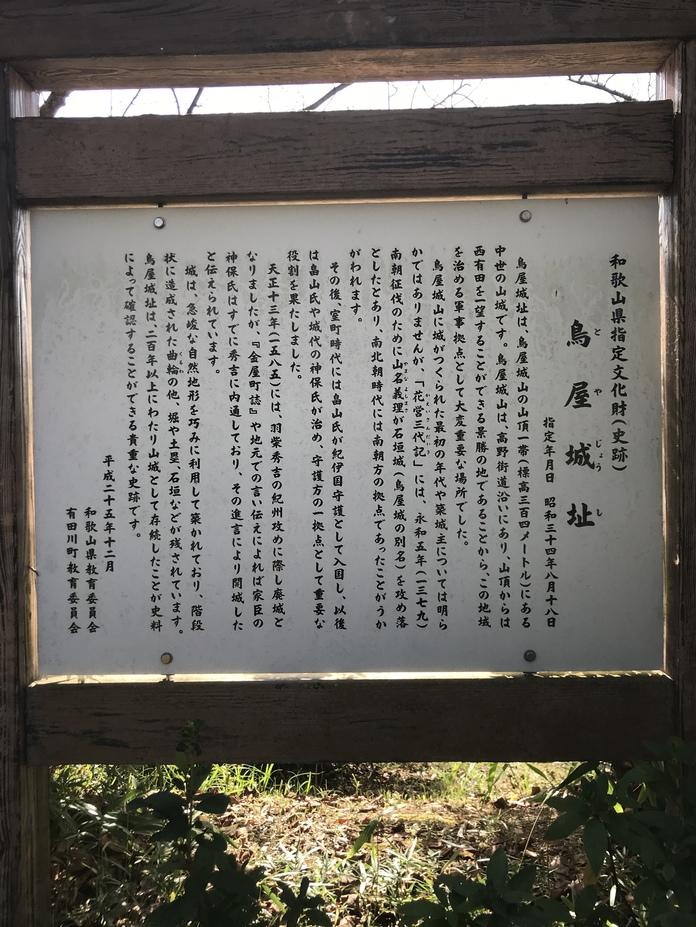 和歌山県指定文化財(史跡)
鳥屋城址
とやじょうし
指定年月日 昭和三十四年八月十八日
鳥屋城址は、鳥屋城山の山頂一帯(標高三百四メートル)にある
中世の山城です。鳥屋城山は、高野街道沿いにあり、山頂からは
西有田を一望することができる景勝の地であることから、この地域
を治める軍事拠点として大変重要な場所でした。
鳥屋城山に城がつくられた最初の年代や築城主については明ら
かではありませんが、「花営三代記」には、永和五年(一三七九)
かえいさんだいき
南朝征伐のために山名義理が石垣城(鳥屋城の別名)を攻め落
やまなよしまさ
としたとあり、南北朝時代には南朝方の拠点であったことがうか
がわれます。
その後、室町時代には畠山氏が紀伊国守護として入国し、以後
は畠山氏や城代の神保氏が治め、守護方の一拠点として重要な
役割を果たしました。
天正十三年(一五八五)には、羽柴秀吉の紀州攻めに際し廃城と
なりましたが、『金屋町誌』や地元での言い伝えによれば家臣の
神保氏はすでに秀吉に内通しており、その進言により開城した
と伝えられています。
城は、急峻な自然地形を巧みに利用して築かれており、階段
状に造成された曲輪の他、堀や土塁、石垣などが残されています。
くるわ
鳥屋城址は二百年以上にわたり山城として存続したことが史料
によって確認することができる貴重な史跡です。
平成二十五年十二月
和歌山県教育委員会
有田川町教育委員会